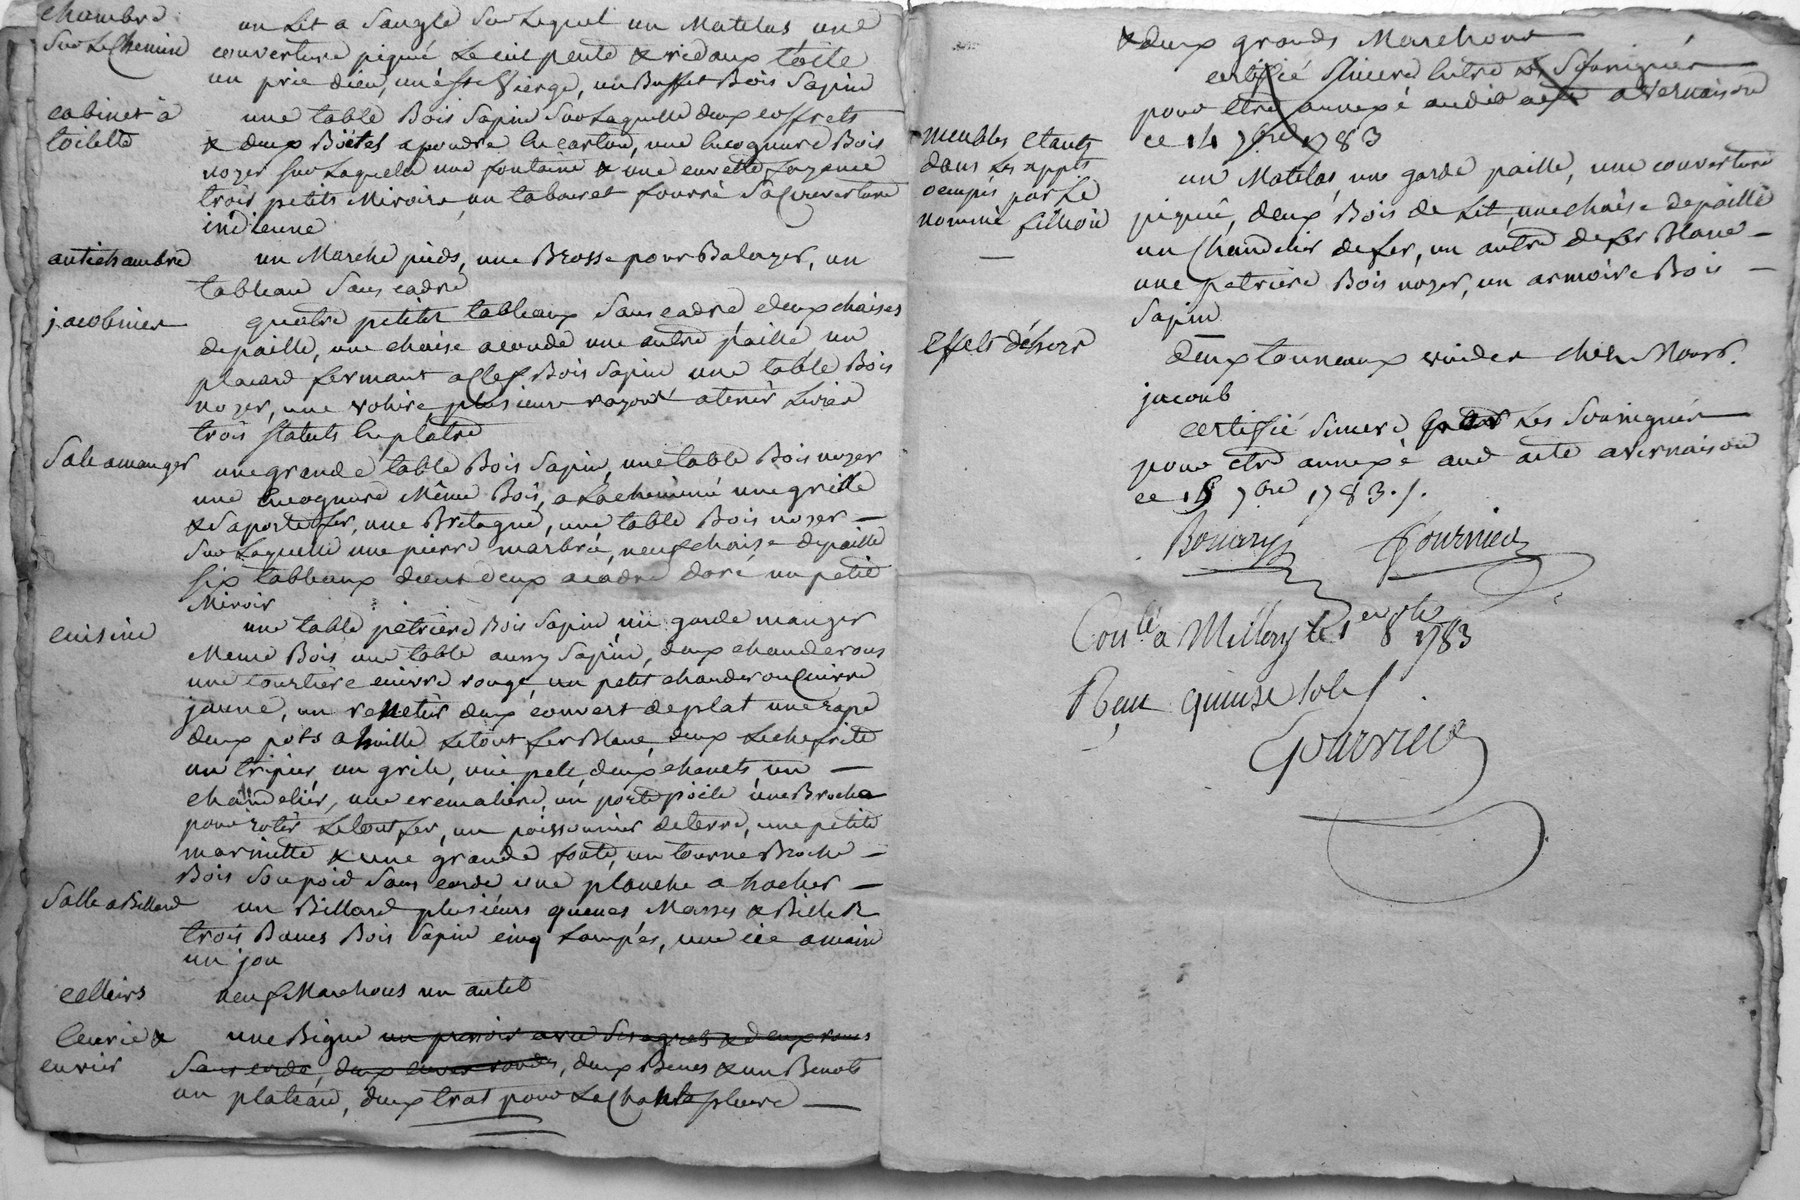 chambre un Lit a Sangle Sur Lequel un Matelas une
Sur Le Chemin couverture piqué Le ciel pente & rideaux toile
un prie dieu, une Ste Vierge, un Buffet Bois Sapin
cabinet à une table Bois Sapin Sur Laquelle deux coffrets
toilette & deux Boëtes a poudre en carton, une encognure Bois
noyer sur Laquelle une fontaine & une cuvette fayence
trois petits Miroirs, un tabouret fourré Sa Couverture
indienne
antichambre un Marche pieds, une Brosse pour Balayer, un
tableau Sans cadre
jacobines quatre petits tableaux Sans cadre deux chaises
de paille, une chaise acoude une autre paille un
placard fermant a Clef Bois Sapin une table Bois
noyer, une voliere, plusieurs rayons a tenir Livres
trois statuts en platre
Sale a manger une grande table Bois Sapin, une table Bois noyer
une encognure Même Bois, a La cheminé une grille
& Sa porte fer, une Bretagne, une table Bois noyer
Sur Laquelle une pierre marbré, neuf chaise de paille
six tableaux dont deux a cadre doré un petit
Miroir
cuisine une table petriere Bois Sapin, un garde manger
Meme Bois une table aussy Sapin, deux chauderons
une tourtière cuivre rouge, un petit chauderon Cuivre
jaune, un deux couvert de plat une rape
deux pots a huille Le tout fer Blanc, deux Lechefrite
un tripier, un grile, une pele, deux chenets, un
chandelier, une cremaliere, un porte poile une Broche
pour rotir Le tout fer, un poissonnier de terre, une petite
marmitte & une grande fonte, un tourne Broche
Bois Son poid Sans corde une planche a hacher
Salle a Billard un Billard plusieurs queues Masses & Billes
trois Bancs Bois Sapin cinq Lampes, une cie a main
un jou
celliers neuf Marchous un autel
Ecurie & une Bigne un pressoir avec Ses agrets & deux roues
cuvier Sans corde, deux cuves rondes, deux Benes & un Benot
un plateau, deux tras pour La Chantepleure
& deux grands Marchous
certifié Sincere Entre Les Soussignés
pour etre annexé audit acte a Vernaison
ce 14 7bre 1783
Meubles Etants un Matelas, une garde paille, une couverture
dans Les appts piquée, deux Bois de Lit, une chaise de paille
ocupés par Le un Chandelier de fer, un autre de fer Blanc
nommé fillion une petriere Bois noyer, un armoire Bois
Sapin
Effets déhors deux tonneaux vuides chez Mour.
jacoub
certifié Sincere par Les Soussignés
pour etre annexé aud acte a Vernaison
ce 15 7bre 1783 ./.
Bouary Fournier
Conlé a Millery le 1er 8bre 1783
Reçu quinze sols